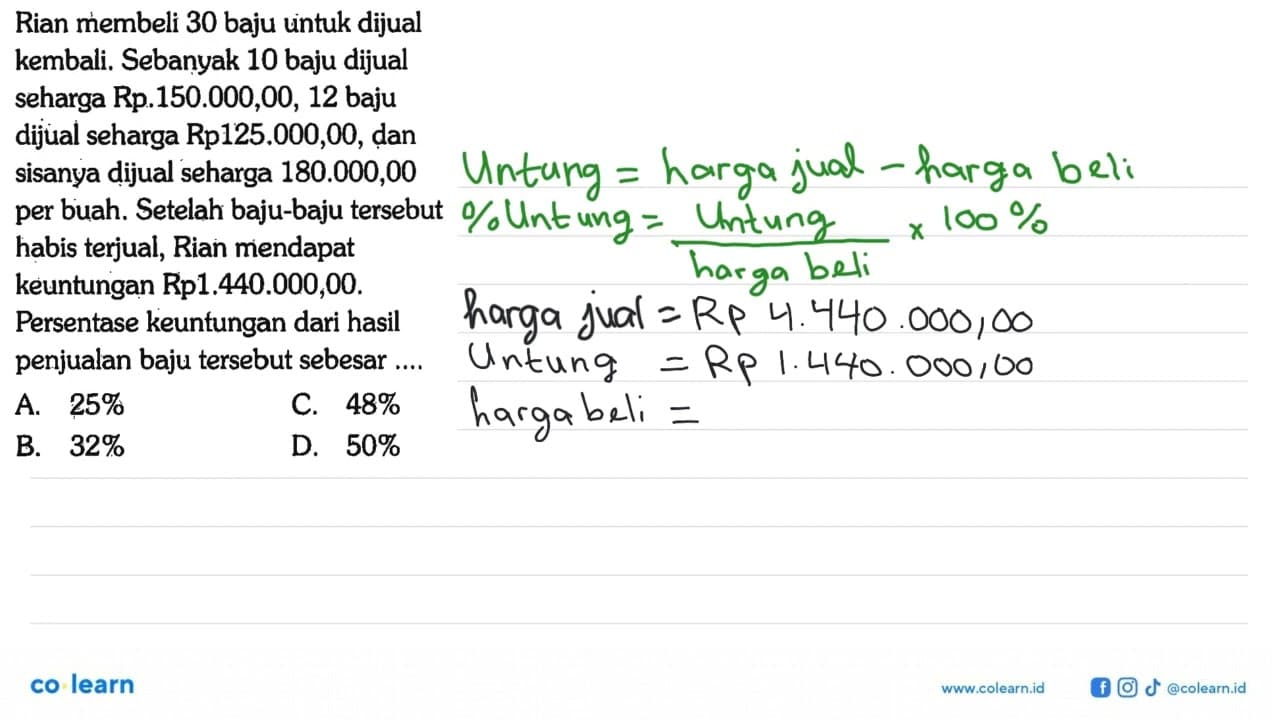 Rian membeli 30 baju untuk dijual
kembali. Sebanyak 10 baju dijual
seharga Rp.150.000,00, 12 baju
dijual seharga Rp125.000,00, dan
sisanya dijual seharga 180.000,00
per buah. Setelah baju-baju tersebut
habis terjual, Rian mendapat
keuntungan Rp1.440.000,00.
Persentase keuntungan dari hasil
penjualan baju tersebut sebesar ....
A. 25% C. 48%
B. 32% D. 50%
Untung = harga jual - harga beli
% Untung = Untung x 100 %
harga beli
harga jual = Rp 4.440.000,00
Untung = Rp 1.440.000,00
harga beli =
co learn
www.colearn.id @colearn.id